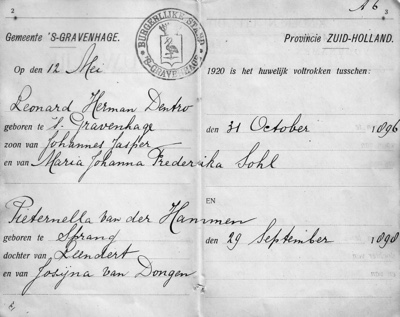 2
A 6
3
Gemeente 'S-GRAVENHAGE.
BURGERLIJKE STAND
'S-GRAVENHAGE
Provincie ZUID-HOLLAND.
Op den 12 Mei 1920 is het huwelijk voltrokken tusschen:
Leonard Herman Dentro
geboren te 's Gravenhage den 31 October 1896
zoon van Johannes Jasper
en van Maria Johanna Frederika Sohl
EN
Pieternella van der Hammen
geboren te Sprang den 29 September 1898
dochter van Leendert
en van Josijna van Dongen